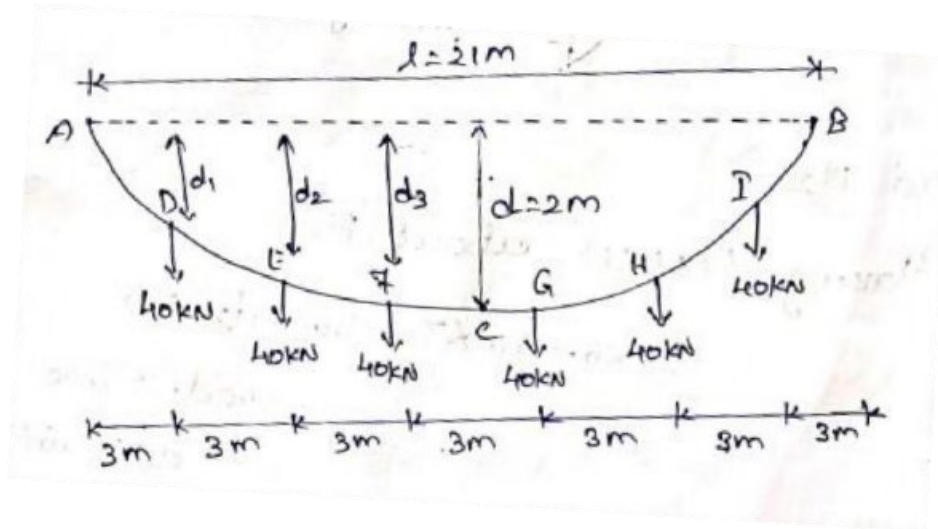 l=21m
A B
d₁ d₂ d₃ d=2m
D E F C G H I
40KN 40KN 40KN 40KN 40KN 40KN
3m 3m 3m 3m 3m 3m 3m